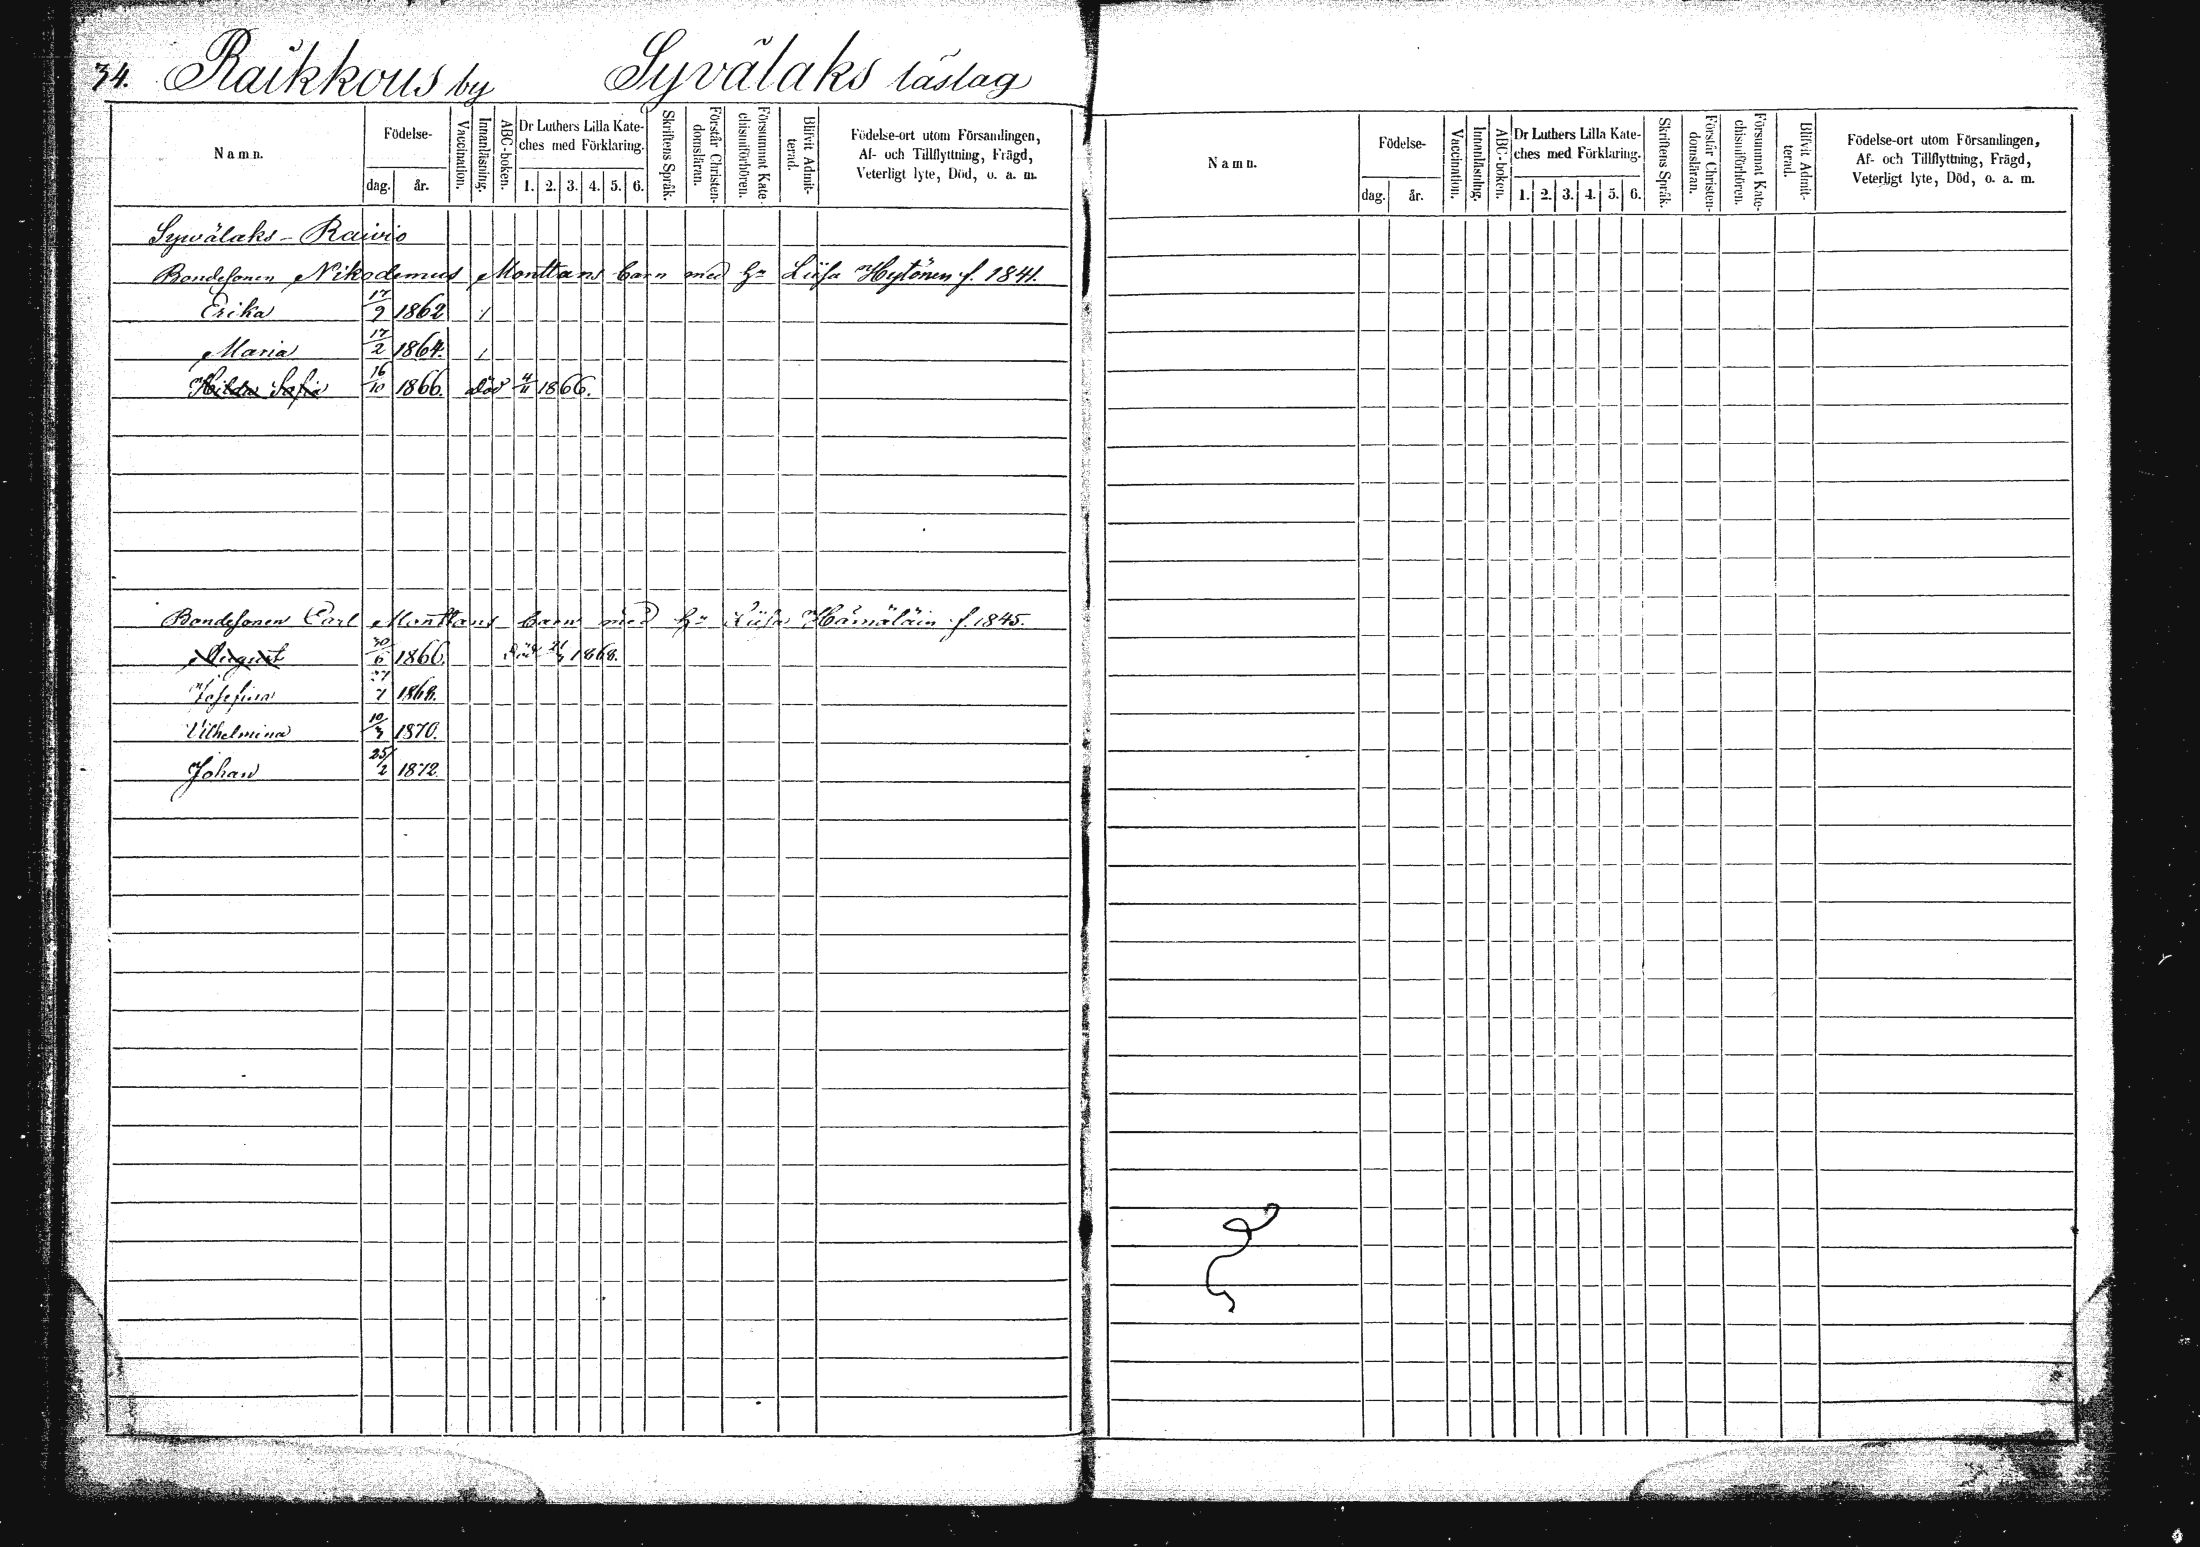 34. Räikkous by Syvälaks läslag
Namn.
Födelse-
dag. år.
Vaccination.
Innanläsning.
ABC-boken.
Dr Luthers Lilla Kate-
ches med Förklaring.
1. 2. 3. 4. 5. 6.
Skriftens Språk.
Förstår Christen-
domsläran.
Försummat Kate-
chismiförhören.
Blifvit Admit-
terad.
Födelse-ort utom Församlingen,
Af- och Tillflyttning, Frägd,
Veterligt lyte, Död, o. a. m.
Syvälaks - Raivio
Bondesonen Nikodemus Monttans barn med hu Liisa Hytönen f. 1841.
Erika 17/9 1862 /
Maria 17/2 1864. /
Hilda Sofia 16/10 1866. död 4/11 1866.
Bondesonen Carl Monttans barn med hu Liisa Hämäläin f. 1845.
August 30/6 1866. död 1868.
Josefina 1868.
Vilhelmina 10/3 1870.
Johan 25/2 1872.
Namn.
Födelse-
dag. år.
Vaccination.
Innanläsning.
ABC-boken.
Dr Luthers Lilla Kate-
ches med Förklaring.
1. 2. 3. 4. 5. 6.
Skriftens Språk.
Förstår Christen-
domsläran.
Försummat Kate-
chismiförhören.
Blifvit Admit-
terad.
Födelse-ort utom Församlingen,
Af- och Tillflyttning, Frägd,
Veterligt lyte, Död, o. a. m.